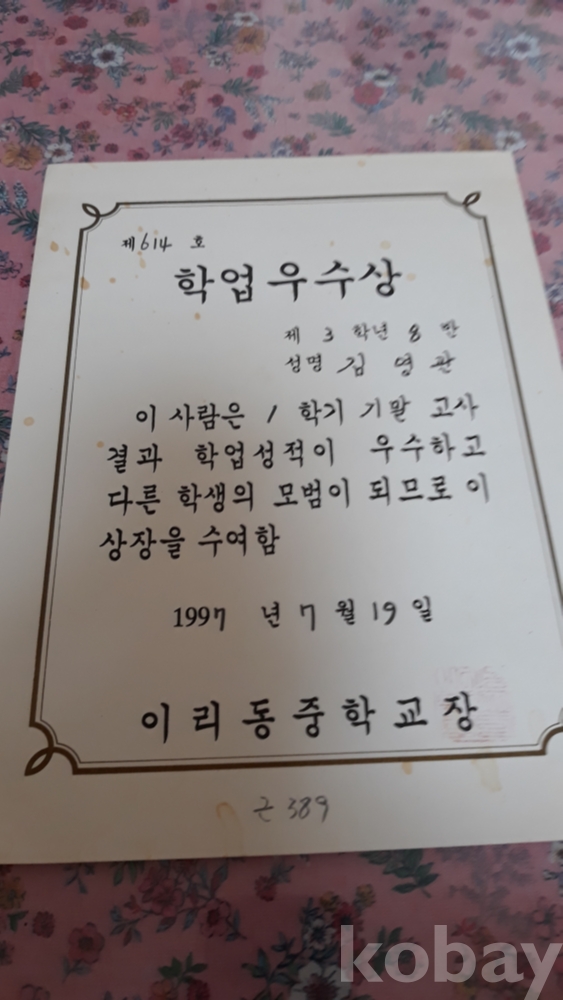 제 614 호
학업우수상
제 3 학년 8 반
성명 김 영 관
이 사람은 1 학기 기말 고사
결과 학업성적이 우수하고
다른 학생의 모범이 되므로 이
상장을 수여함
1997 년 7 월 19 일
이리동중학교장
근 389
kobay